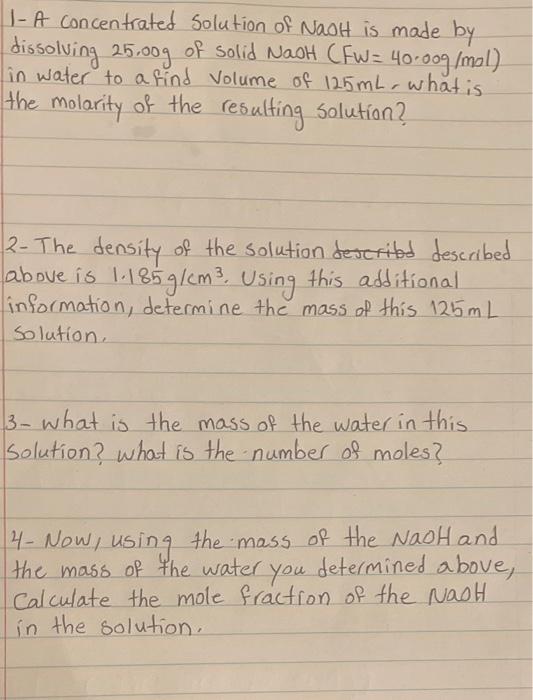 1- A concentrated Solution of NaOH is made by
dissolving 25.00g of solid NaOH (FW= 40.00g/mol)
in water to a find Volume of 125mL. what is
the molarity of the resulting solution?
2- The density of the solution describd described
above is 1.185g/cm³. Using this additional
information, determine the mass of this 125mL
solution.
3- what is the mass of the water in this
Solution? what is the number of moles?
4- Now, using the mass of the NaOH and
the mass of the water you determined above,
Calculate the mole fraction of the NaOH
in the solution.